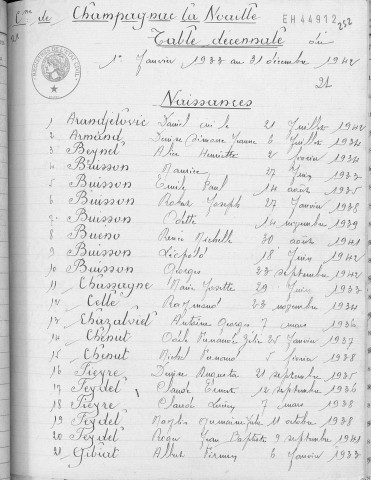 Cne de Champagnac la Noaille
EH44912
252
Table décennale du
1er Janvier 1933 au 31 décembre 1942
Naissances
1 Arandjelovic Daniel 21 Juillet 1942
2 Armand Denise Simone Jeanne 6 Juillet 1934
3 Beynel Alice Henriette 2 février 1934
4 Buisson Maurice 27 Juin 1933
5 Buisson Emile Paul 14 août 1935
6 Buisson Robert Joseph 27 Janvier 1938
7 Buisson Odette 14 novembre 1939
8 Bueno Renée Michelle 30 août 1941
9 Buisson Léopold 18 Juin 1942
10 Buisson Georges 23 septembre 1942
11 Chassagne Marie Josette 29 Juin 1933
12 Celle Raymond 23 novembre 1934
13 Chazalviel Antoine Georges 7 mars 1936
14 Chenut Odile Fernande 25 Janvier 1937
15 Chenut Michel Fernand 5 février 1938
16 Fieyre Augusta 21 septembre 1935
17 Feydel Claude Ernest 12 septembre 1936
18 Fieyre Claude 7 mars 1938
19 Feydel 11 octobre 1938
20 Feydel Roger Jean Baptiste 9 septembre 1941
21 Gibiat Albert 6 Janvier 1933